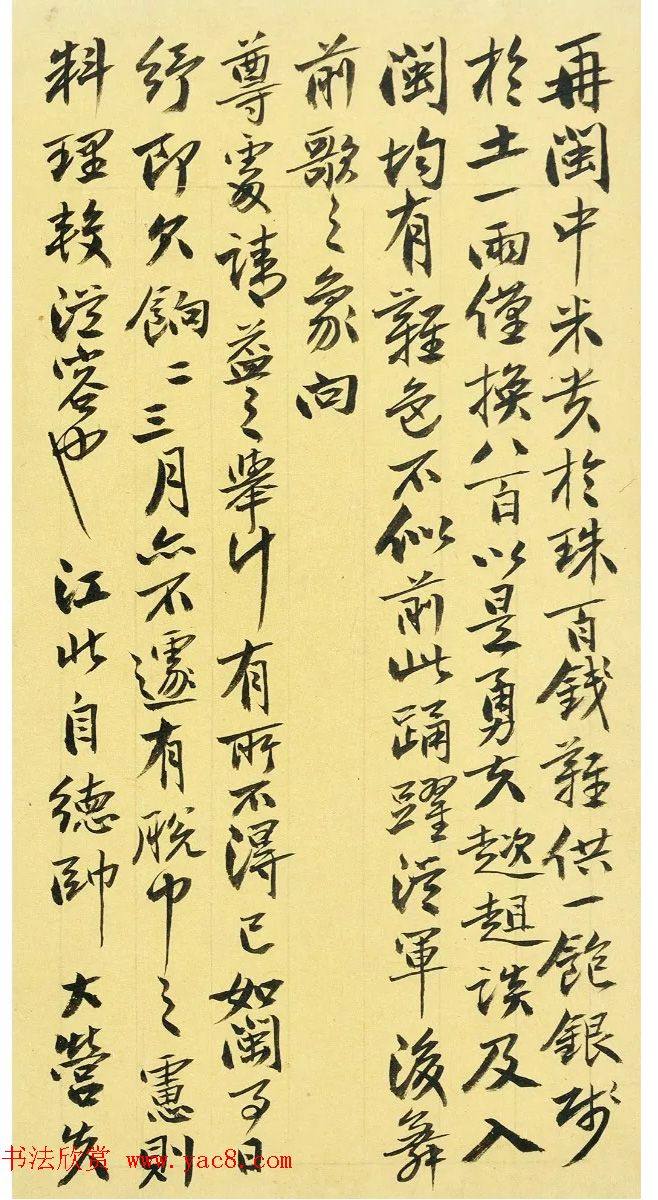 再閩中米貴於珠百錢難供一飽銀賤
於土一兩僅換八百以是勇夫趑趄談及入
閩均有難色不似前此踴躍從軍後舞
前歌之象向
尊處請益之舉計有所不得已如閩事日
紓即欠餉二三月亦不遽有脫巾之慮則
料理較從容也 江北自德帥大營失
书法欣赏 www.yac8.com